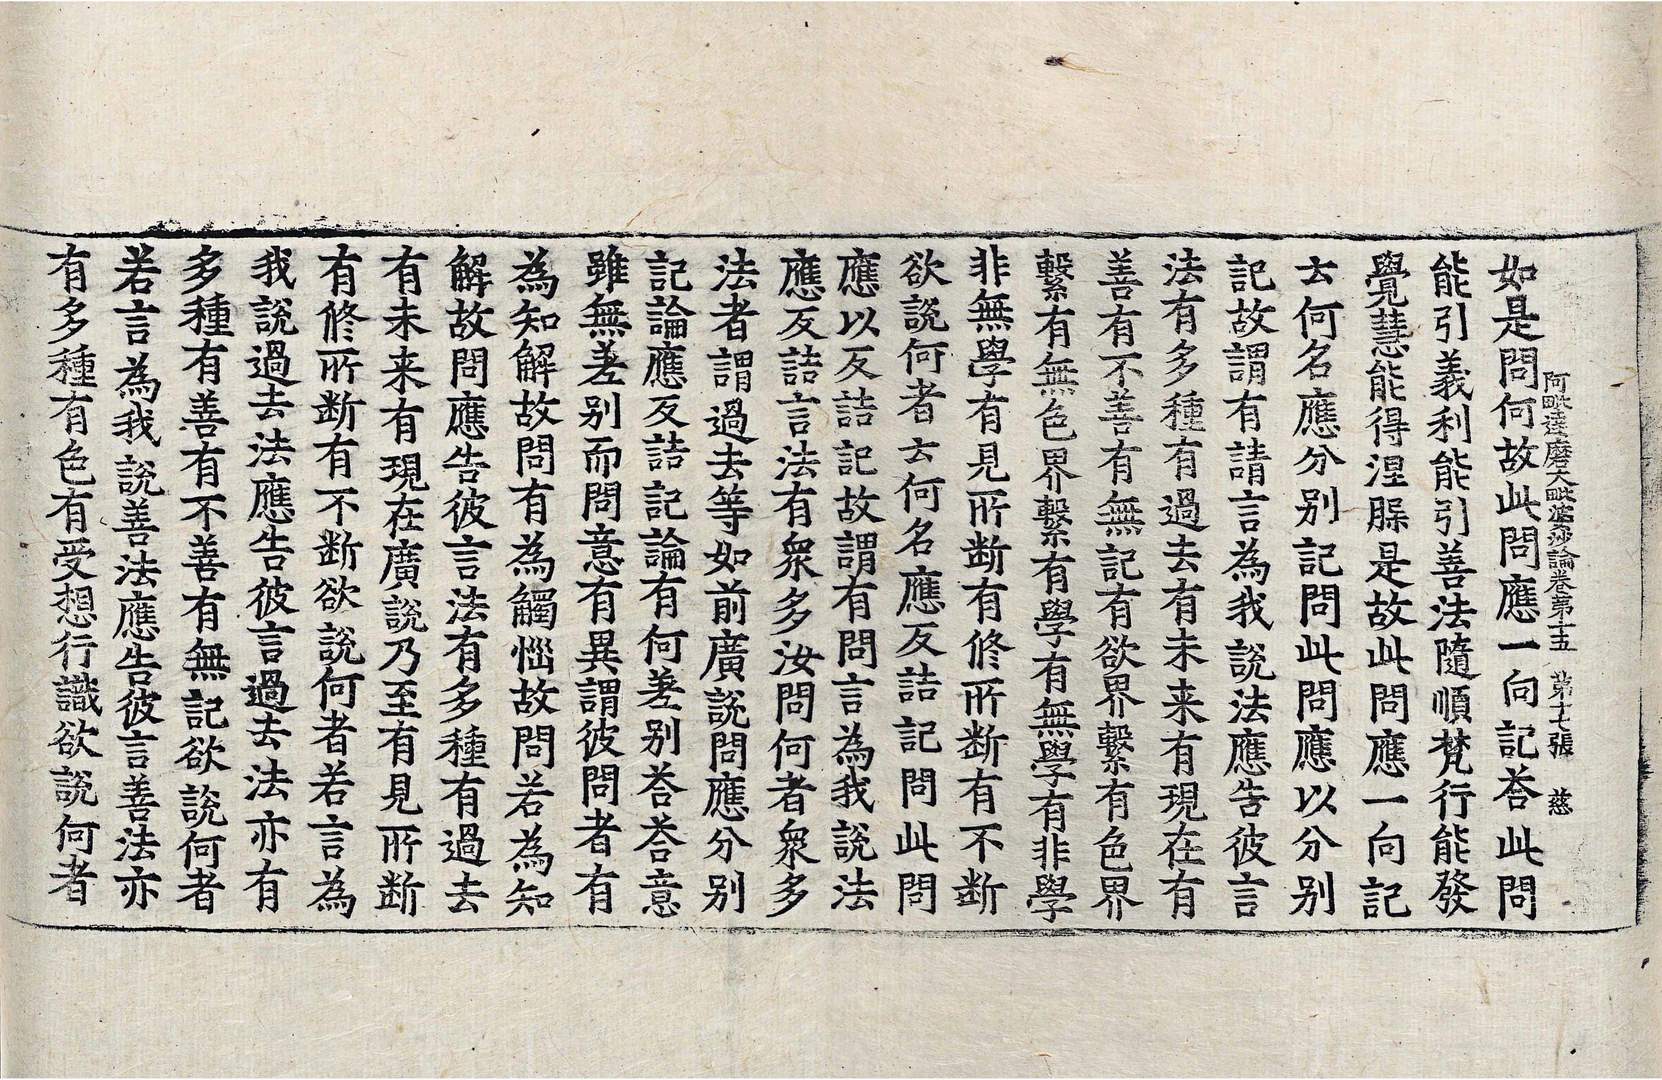 阿毗達磨大毗婆沙論卷第十五　第十七張　慈
如是問何故此問應一向記荅此問
能引義利能引善法隨順梵行能發
覺慧能得涅槃是故此問應一向記
云何名應分别記問此問應以分别
記故謂有請言為我說法應告彼言
法有多種有過去有未来有現在有
善有不善有無記有欲界繫有色界
繫有無色界繫有學有無學有非學
非無學有見所断有修所断有不断
欲說何者云何名應反詰記問此問
應以反詰記故謂有問言為我說法
應反詰言法有衆多汝問何者衆多
法者謂過去等如前廣說問應分别
記論應反詰記論有何差别荅荅意
雖無差别而問意有異謂彼問者有
為知解故問有為觸惱故問若為知
解故問應告彼言法有多種有過去
有未来有現在廣說乃至有見所断
有修所断有不断欲說何者若言為
我說過去法應告彼言過去法亦有
多種有善有不善有無記欲說何者
若言為我說善法應告彼言善法亦
有多種有色有受想行識欲說何者